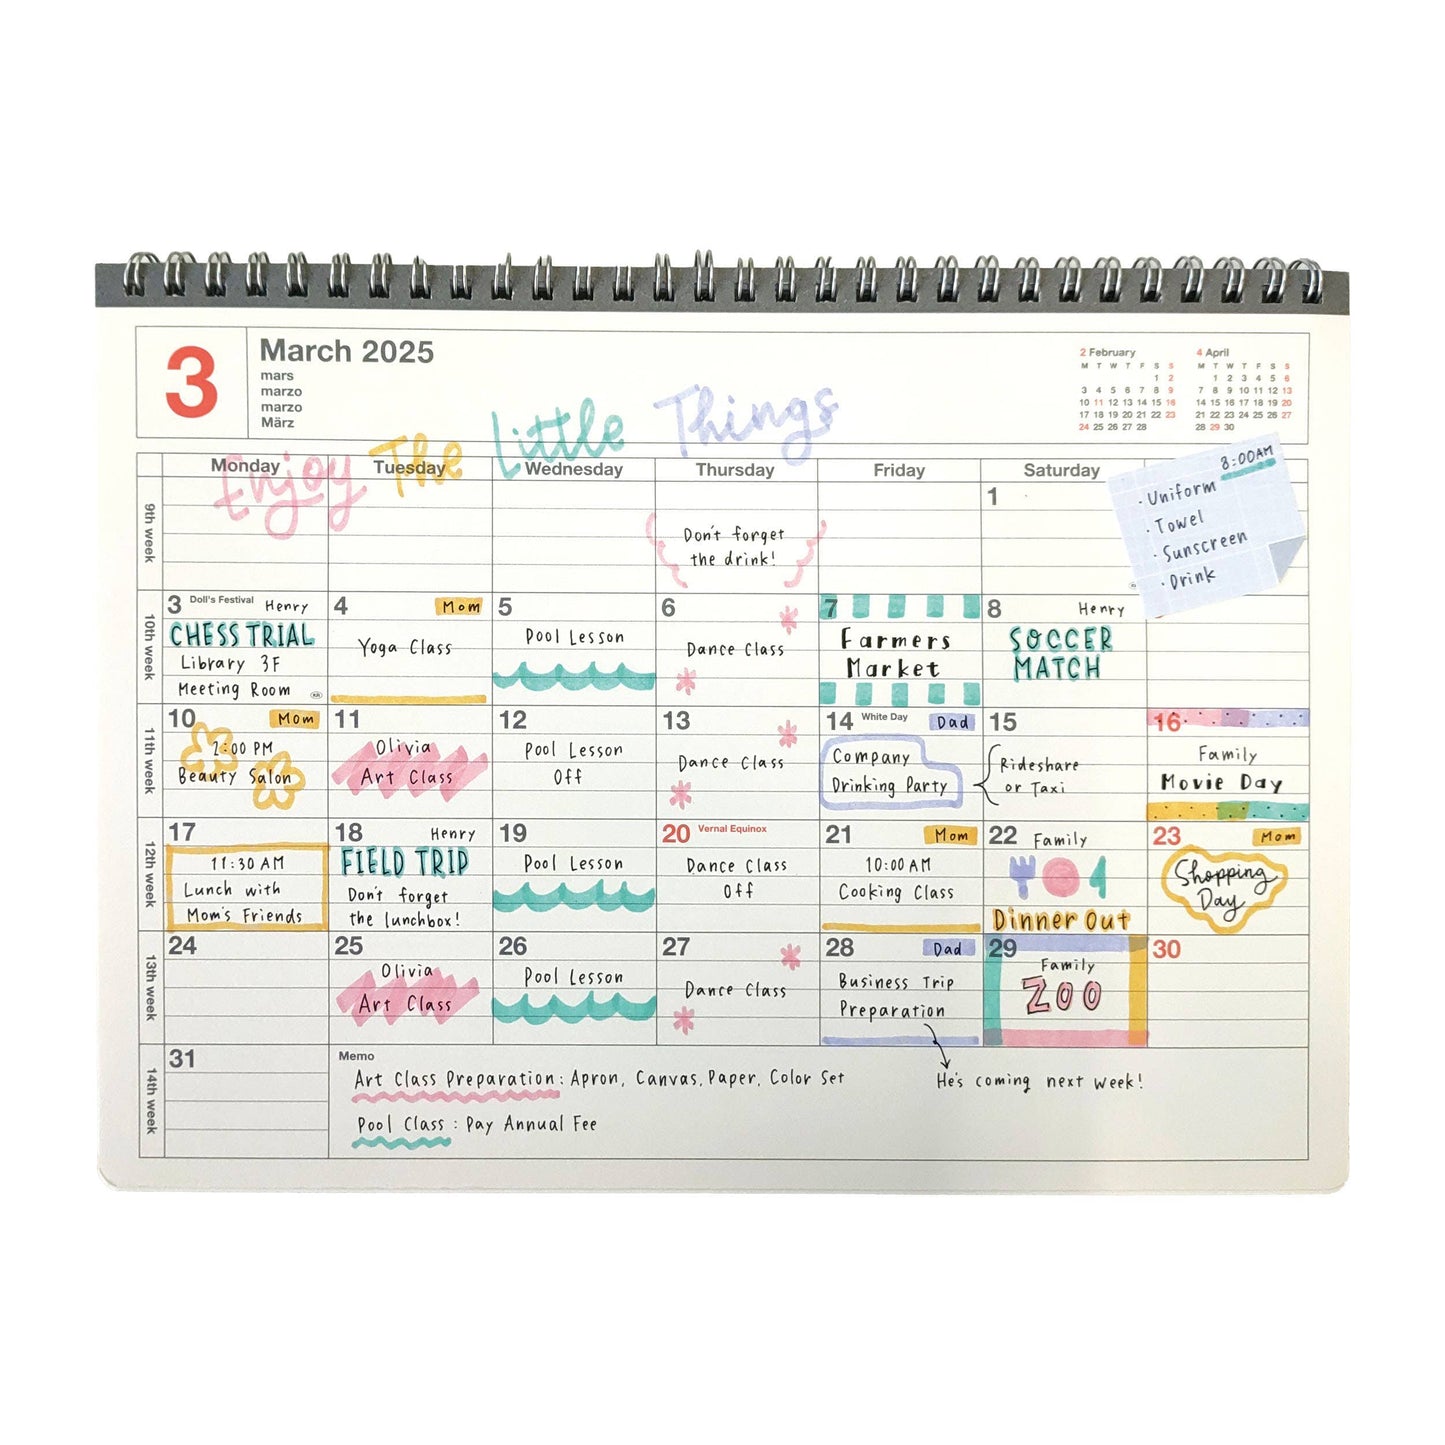 3
March 2025
mars
marzo
marzo
März
Enjoy The Little Things
2 February
M T W T F S S
1 2
3 4 5 6 7 8 9
10 11 12 13 14 15 16
17 18 19 20 21 22 23
24 25 26 27 28
4 April
M T W T F S S
1 2 3 4 5 6
7 8 9 10 11 12 13
14 15 16 17 18 19 20
21 22 23 24 25 26 27
28 29 30
Monday Tuesday Wednesday Thursday Friday Saturday
8:00AM
· Uniform
· Towel
· Sunscreen
· Drink
9th week
Don't forget
the drink!
1
10th week
3 Doll's Festival Henry
CHESS TRIAL
Library 3F
Meeting Room
4 Mom
Yoga Class
5
Pool Lesson
6
Dance Class
7
Farmers
Market
8 Henry
SOCCER
MATCH
11th week
10 Mom
2:00 PM
Beauty Salon
11
Olivia
Art Class
12
Pool Lesson
Off
13
Dance Class
14 White Day Dad
Company
Drinking Party
15
Rideshare
or Taxi
16
Family
Movie Day
12th week
17
11:30 AM
Lunch with
Mom's Friends
18 Henry
FIELD TRIP
Don't forget
the lunchbox!
19
Pool Lesson
20 Vernal Equinox
Dance Class
Off
21 Mom
10:00 AM
Cooking Class
22 Family
Dinner Out
23 Mom
Shopping
Day
13th week
24
25
Olivia
Art Class
26
Pool Lesson
27
Dance Class
28 Dad
Business Trip
Preparation
29
Family
ZOO
30
14th week
31
Memo
Art Class Preparation : Apron, Canvas, Paper, Color Set
Pool Class : Pay Annual Fee
He's coming next week!